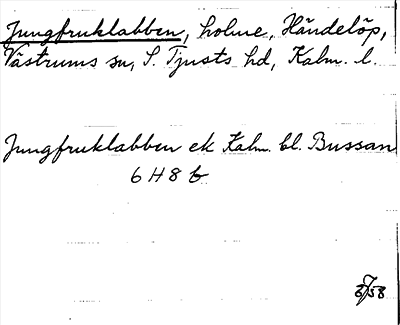 Jungfruklabben, holme, Händelöp,
Västrums sn, S. Tjusts hd, Kalm. l.
Jungfruklabben ek Kalm. bl. Bussan
6 H 8 b